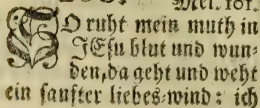 Mel. 101.
So ruht mein muth in
JEsu blut und wun-
den, da geht und weht
ein sanfter liebes-wind: ich